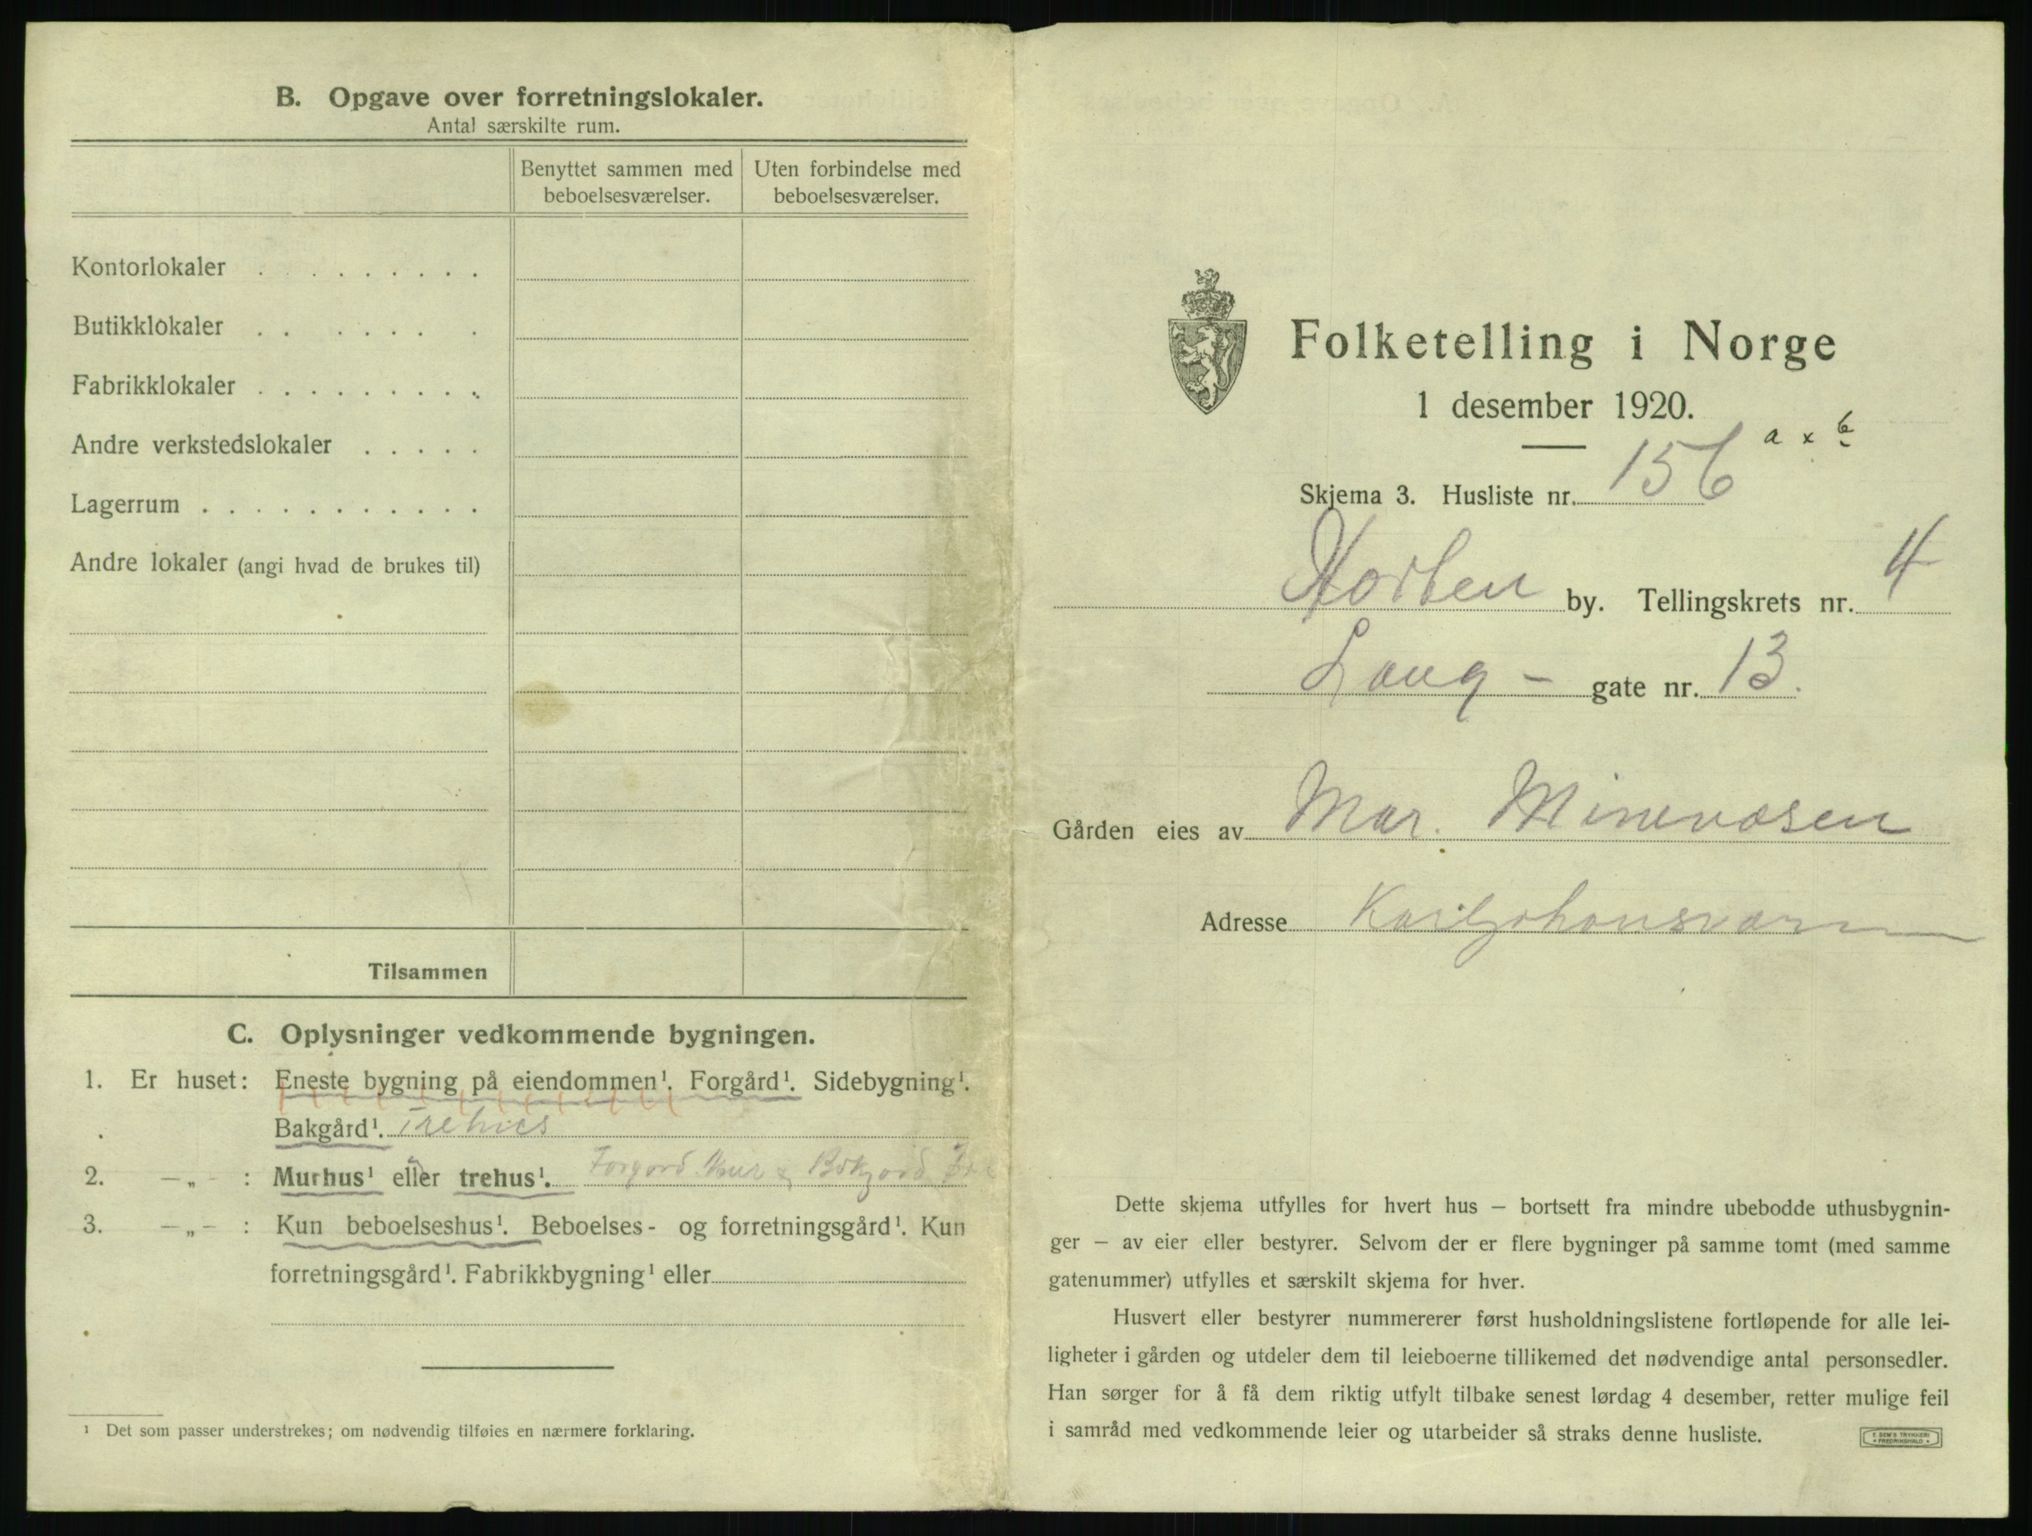 B. Opgave over forretningslokaler.
Antal særskilte rum.
Benyttet sammen med beboelsesværelser.
Uten forbindelse med beboelsesværelser.
Kontorlokaler . . . . . . . . .
Butikklokaler . . . . . . .
Fabrikklokaler . . . . . . . . .
Andre verkstedslokaler . . . . .
Lagerrum . . . . . . . . . . .
Andre lokaler (angi hvad de brukes til)
Tilsammen
C. Oplysninger vedkommende bygningen.
1. Er huset: Eneste bygning på eiendommen¹. Forgård¹. Sidebygning¹.
Bakgård¹. Trehus
2. —„— : Murhus¹ eller trehus¹. Forgord Mur & Bakgord Tre
3. —„— : Kun beboelseshus¹. Beboelses- og forretningsgård¹. Kun
forretningsgård¹. Fabrikkbygning¹ eller
¹ Det som passer understrekes; om nødvendig tilføies en nærmere forklaring.
Folketelling i Norge
1 desember 1920.
Skjema 3. Husliste nr. 156 a x b
Horten by. Tellingskrets nr. 4
Lang - gate nr. 13.
Gården eies av Mar. Minevasen
Adresse Karljohansvarn
Dette skjema utfylles for hvert hus — bortsett fra mindre ubebodde uthusbygnin-
ger — av eier eller bestyrer. Selvom der er flere bygninger på samme tomt (med samme
gatenummer) utfylles et særskilt skjema for hver.
Husvert eller bestyrer nummererer først husholdningslistene fortløpende for alle lei-
ligheter i gården og utdeler dem til leieboerne tillikemed det nødvendige antal personsedler.
Han sørger for å få dem riktig utfylt tilbake senest lørdag 4 desember, retter mulige feil
i samråd med vedkommende leier og utarbeider så straks denne husliste.
E SEM'S TRYKKERI
FREDRIKSHALD